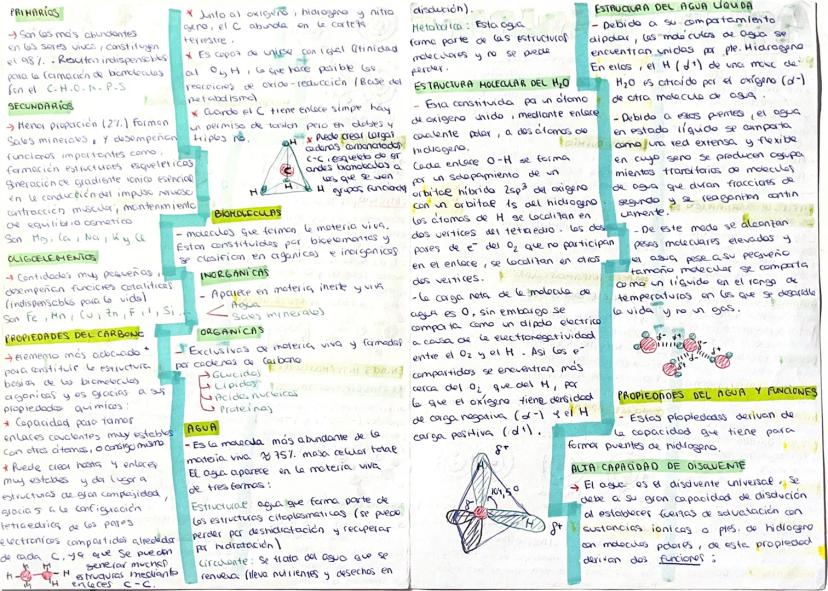 PRIMARIOS
→ Son los más abundantes
en los seres vivos, constituyen
el 98%. Resultan indispensables
para la formación de biomoléculas
Son el C.H.O.N.P.S
SECUNDARIOS
→ Menor proporción (2%) forman
sales minerales, y desempeñan
funciones importantes como:
formación estructuras esqueleticas
generación de gradiente iónico esencial
en la conducción del impulso nervioso
contracción muscular, mantenimiento
de equilibrio osmótico
Son Mg, Ca, Na, K y Cl
OLIGOELEMENTOS
→ Cantidades muy pequeñas,
desempeñan funciones catalíticas
(indispensables para la vida)
Son Fe, Mn, Cu, Zn, F, I, Si, ...
PROPIEDADES DEL CARBONO
→ elemento más adecuado
para constituir la estructura
básica de las biomoléculas
orgánicas y es gracias a sus
propiedades químicas:
* Capacidad para formar
enlaces covalentes muy estables
con otros átomos, o consigo mismo
* Puede crear hasta 4 enlaces
muy estables y da lugar a
estructuras de gran complejidad,
gracias a la configuración
tetraédrica de los pares
electrónicos compartidos alrededor
de cada C, ya que se pueden
generar muchas
estructuras mediante
enlaces C-C.
* Junto al oxígeno, hidrógeno y nitro
geno, el C abunda en la corteza
terrestre.
* Es capaz de unirse con igual afinidad
al O y H, lo que hace posible las
reacciones de oxido-reducción (Base del
metabolismo)
* Cuando el C tiene enlace simple hay
un permiso de torsión pero en dobles y
triples no.
* Puede crear largas
cadenas carbonatadas
C-C, esqueleto de gr
andes biomoléculas a
las que se unen
grupos funcionales
H
C
H
H
H
BIOMOLECULAS
- moléculas que forman la materia viva.
Están constituidas por bioelementos y
se clasifican en orgánicas e inorgánicas
INORGANICAS
- Aparece en materia inerte y viva
Agua
Sales minerales
ORGANICAS
→ Exclusivas de materia viva y formadas
por cadenas de carbono
→ Glucidos
→ Lipidos
→ Acidos nucleicos
→ Proteinas
AGUA
- Es la molecula más abundante de la
materia viva ≈ 75% masa celular total
El agua aparece en la materia viva
de tres formas:
Estructural: agua que forma parte de
las estructuras citoplasmaticas (se puede
perder por deshidratación y recuperar
por hidratación)
Circulante: Se trata del agua que se
renueva (lleva nutrientes y desechos en
disolución).
Metabolica: Esta agua
forma parte de las estructuras
moleculares y no se puede
perder.
ESTRUCTURA MOLECULAR DEL H2O
- Esta constituida por un átomo
de oxigeno unido, mediante enlace
covalente polar, a dos átomos de
hidrogeno.
Cada enlace O-H se forma
por un solapamiento de un
orbital hibrido 2sp³ del oxigeno
con un orbital 1s del hidrogeno
los átomos de H se localizan en
dos vertices del tetraedro. los dos
pares de e⁻ del O2 que no participan
en el enlace, se localizan en otros
dos vertices.
- La carga neta de la molecula de
agua es 0, sin embargo se
comporta como un dipolo electrico
a causa de la electronegatividad
entre el O2 y el H. Asi los e⁻
compartidos se encuentran más
cerca del O2 que del H, por
lo que el oxigeno tiene densidad
de carga negativa (d⁻) y el H
carga positiva (d⁺).
δ+
H
104,5°
H
δ+
ESTRUCTURA DEL AGUA LÍQUIDA
- Debido a su comportamiento
dipolar, las moleculas de agua se
encuentran unidas por pte. Hidrogeno
En ellos, el H (d⁺) de una molec de
H2O es atraido por el oxigeno (d⁻)
de otra molecula de agua.
- Debido a estos puentes, el agua
en estado liquido se comporta
como una red extensa y flexible
en cuyo seno se producen agrupa
mientos transitorios de moleculas
de agua que duran fracciones de
segundo y se reagrupan contin
uamente.
- De este modo se alcanzan
pesos moleculares elevados y
el agua pese a su pequeño
tamaño molecular se comporta
como un líquido en el rango de
temperaturas en las que se desarrolla
la vida y no un gas.
PROPIEDADES DEL AGUA Y FUNCIONES
- Estas propiedades derivan de
la capacidad que tiene para
formar puentes de hidrogeno.
ALTA CAPACIDAD DE DISOLVENTE
→ El agua es el disolvente universal. Se
debe a su gran capacidad de disolución
al establecer fuerzas de solvatación con
sustancias ionicas o ptes. de hidrogeno
con moleculas polares, de esta propiedad
derivan dos funciones: